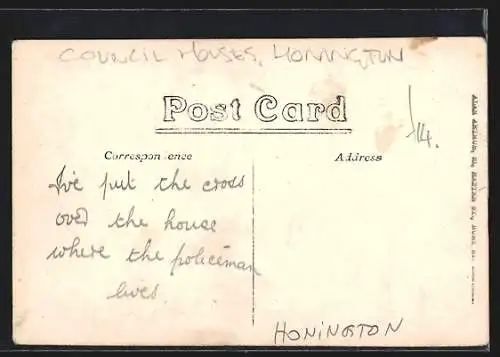 COUNCIL HOUSES, HONINGTON
Post Card
/14.
Correspondence
Address
I've put the cross
over the house
where the policeman
lives
HONINGTON